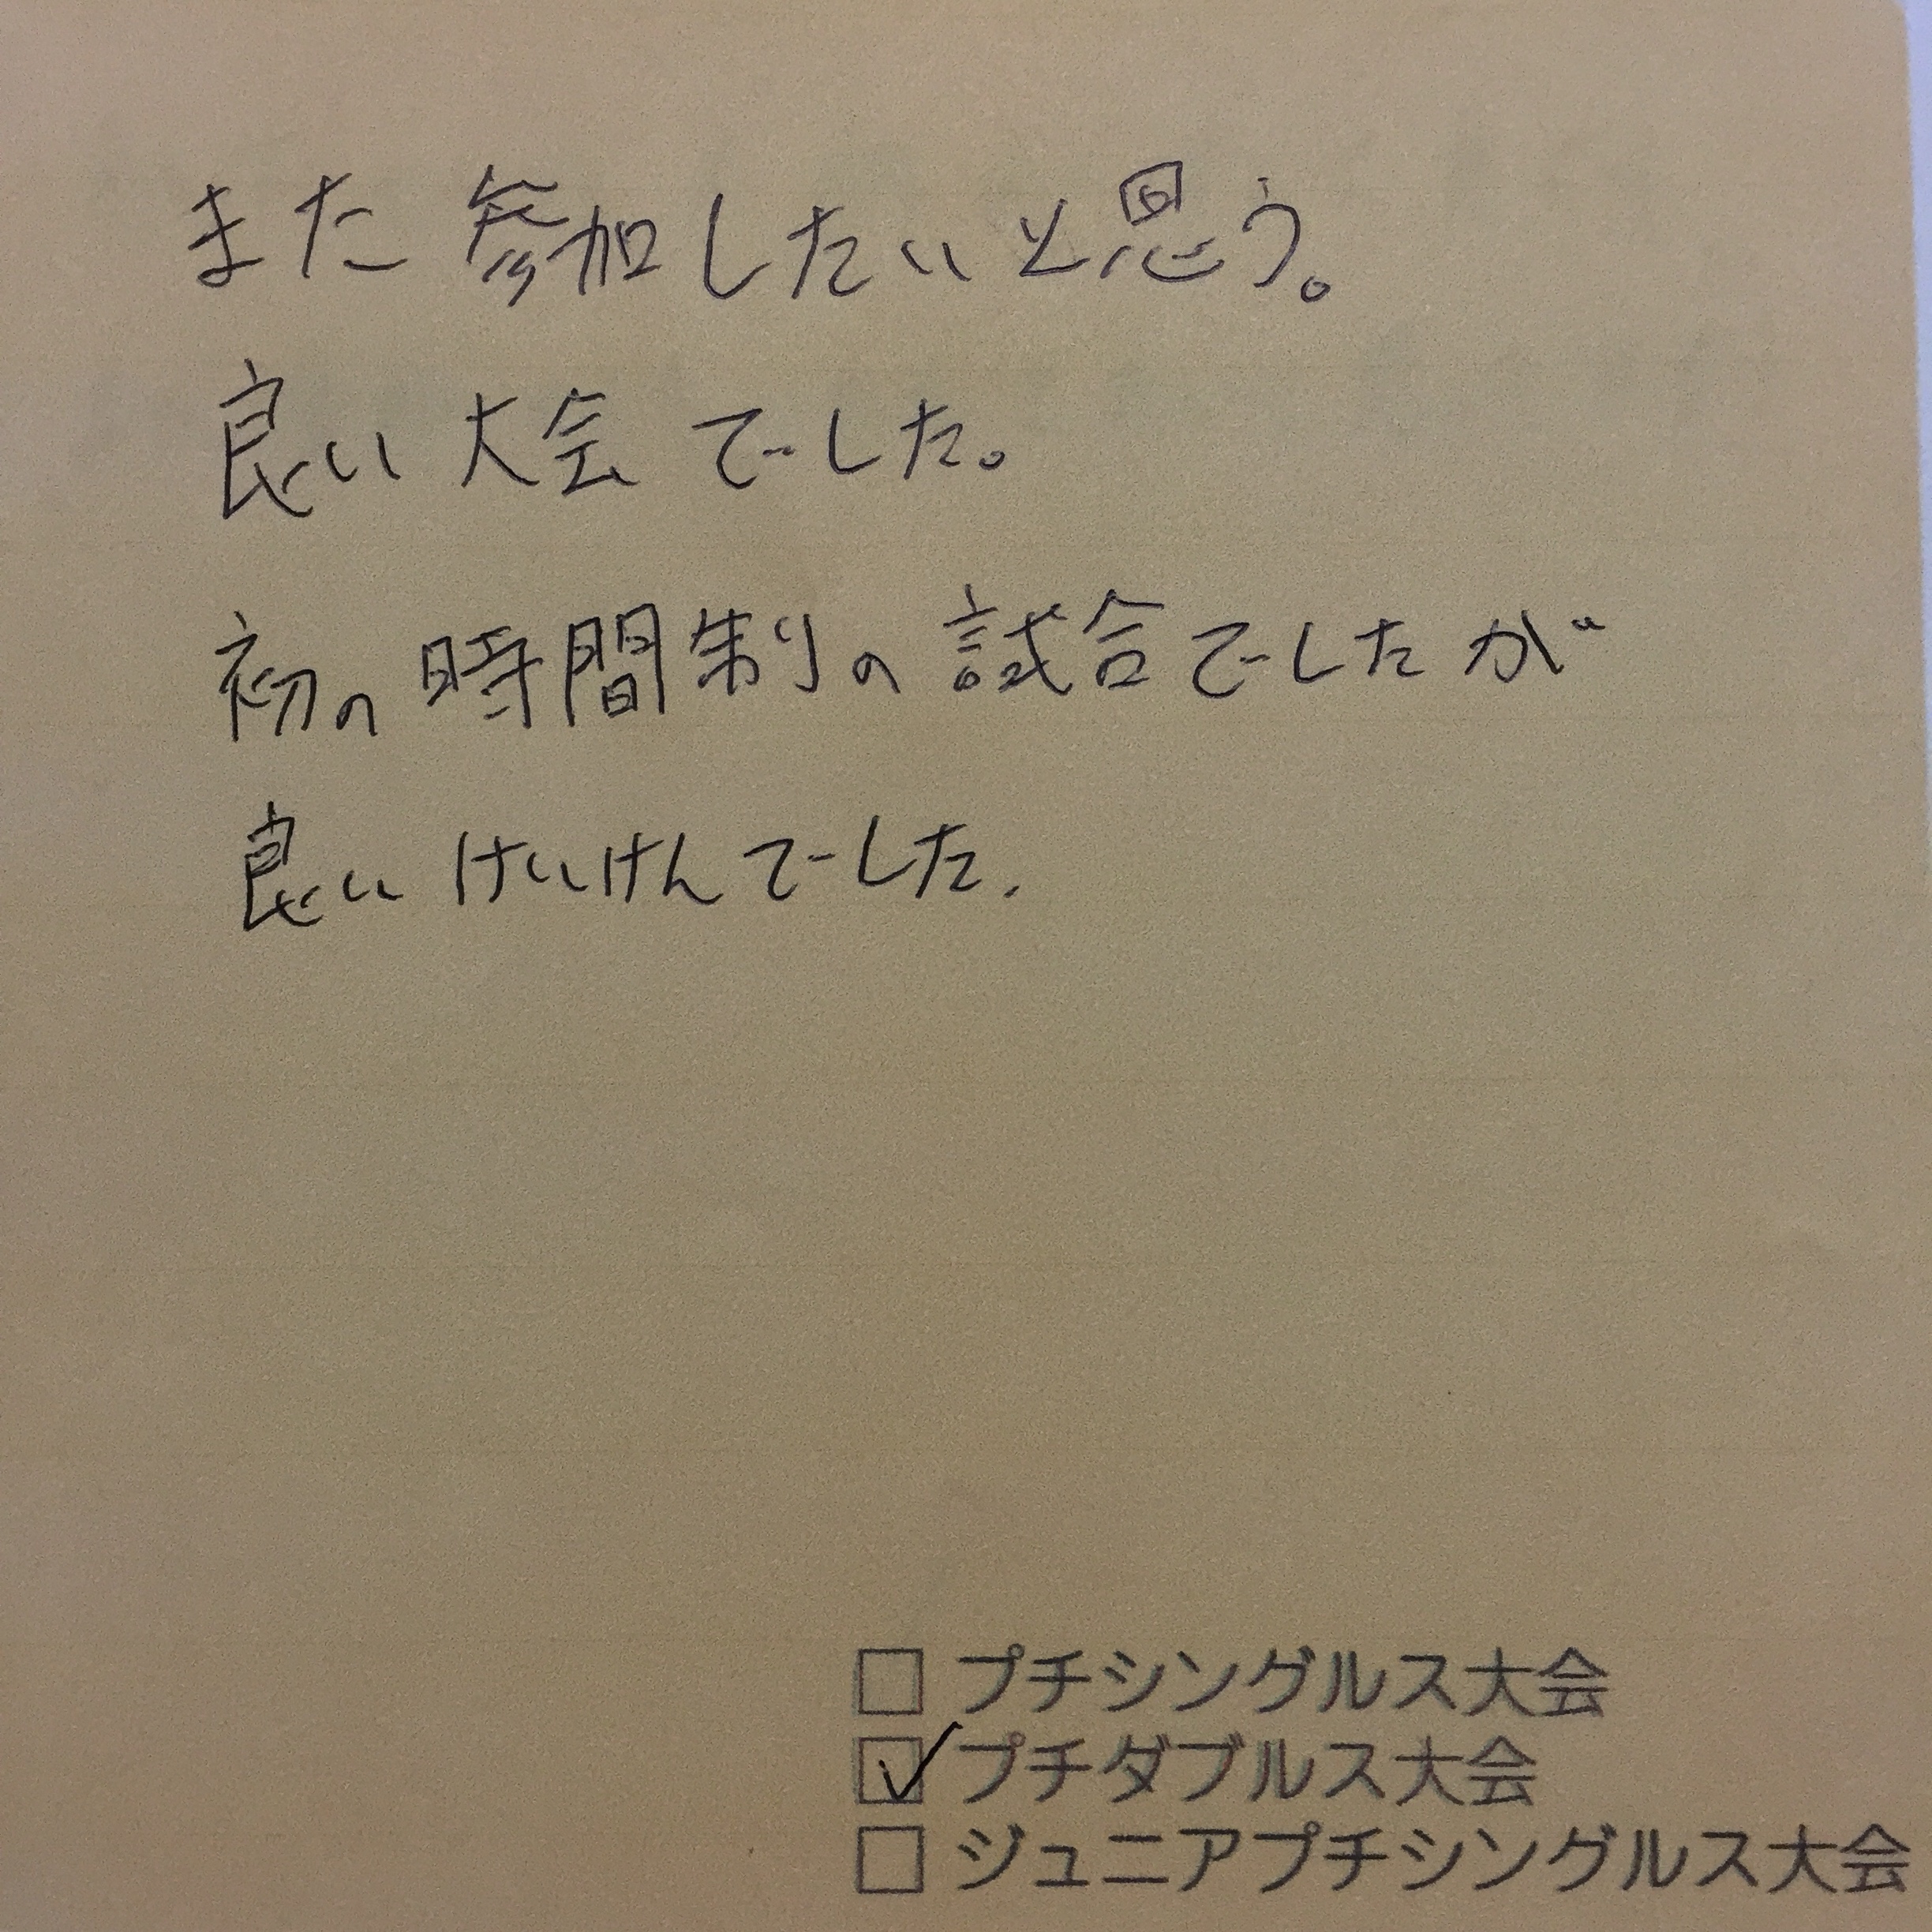 また参加したいと思う。
良い大会でした。
初の時間制の試合でしたが
良いけいけんでした.
□ プチシングルス大会
☑ プチダブルス大会
□ ジュニアプチシングルス大会